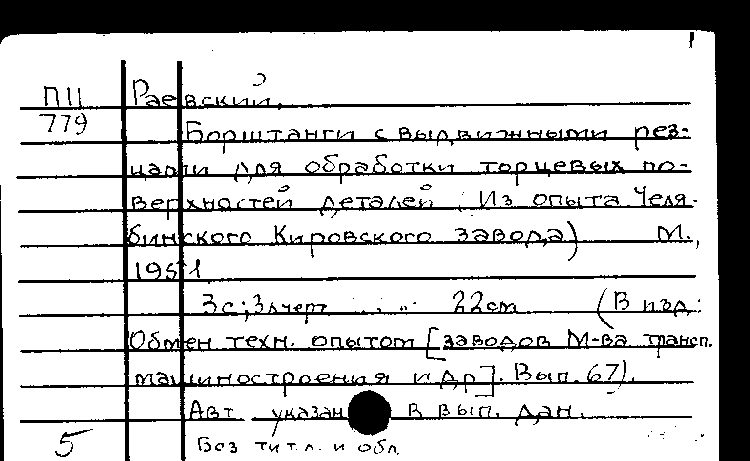 П11 Раевский.
779 Борштанги с выдвижными рез-
цами для обработки торцевых по-
верхностей деталей. Из опыта Челя-
бинского Кировского завода) М.,
1951.
3с; 3л черт. 22см (В изд.:
Обмен техн. опытом [заводов М-ва трансп.
машиностроения и др]. Вып. 67).
Авт. указан в вып. дан.
5 Без тит. л. и обл.